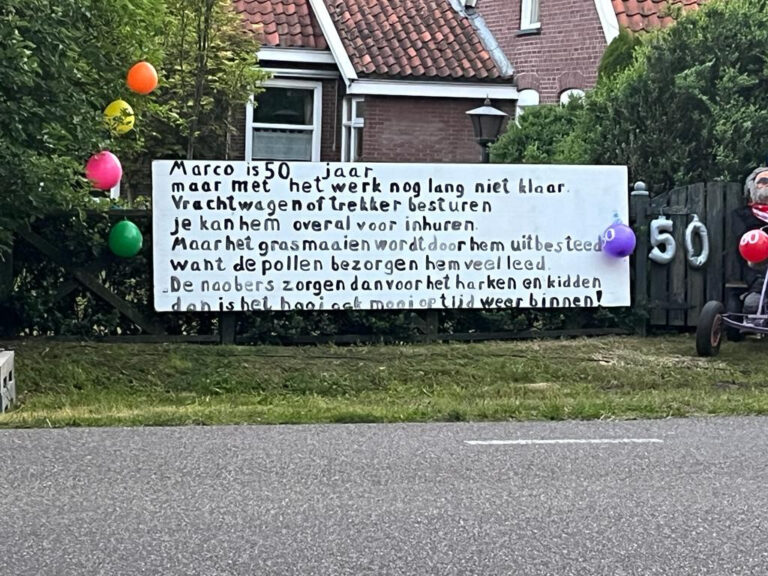 Marco is 50 jaar
maar met het werk nog lang niet klaar.
Vrachtwagen of trekker besturen
je kan hem overal voor inhuren.
Maar het gras maaien wordt door hem uitbesteed
want de pollen bezorgen hem veel leed.
De naobers zorgen dan voor het harken en kidden
dan is het hooi ook mooi op tijd weer binnen!
50